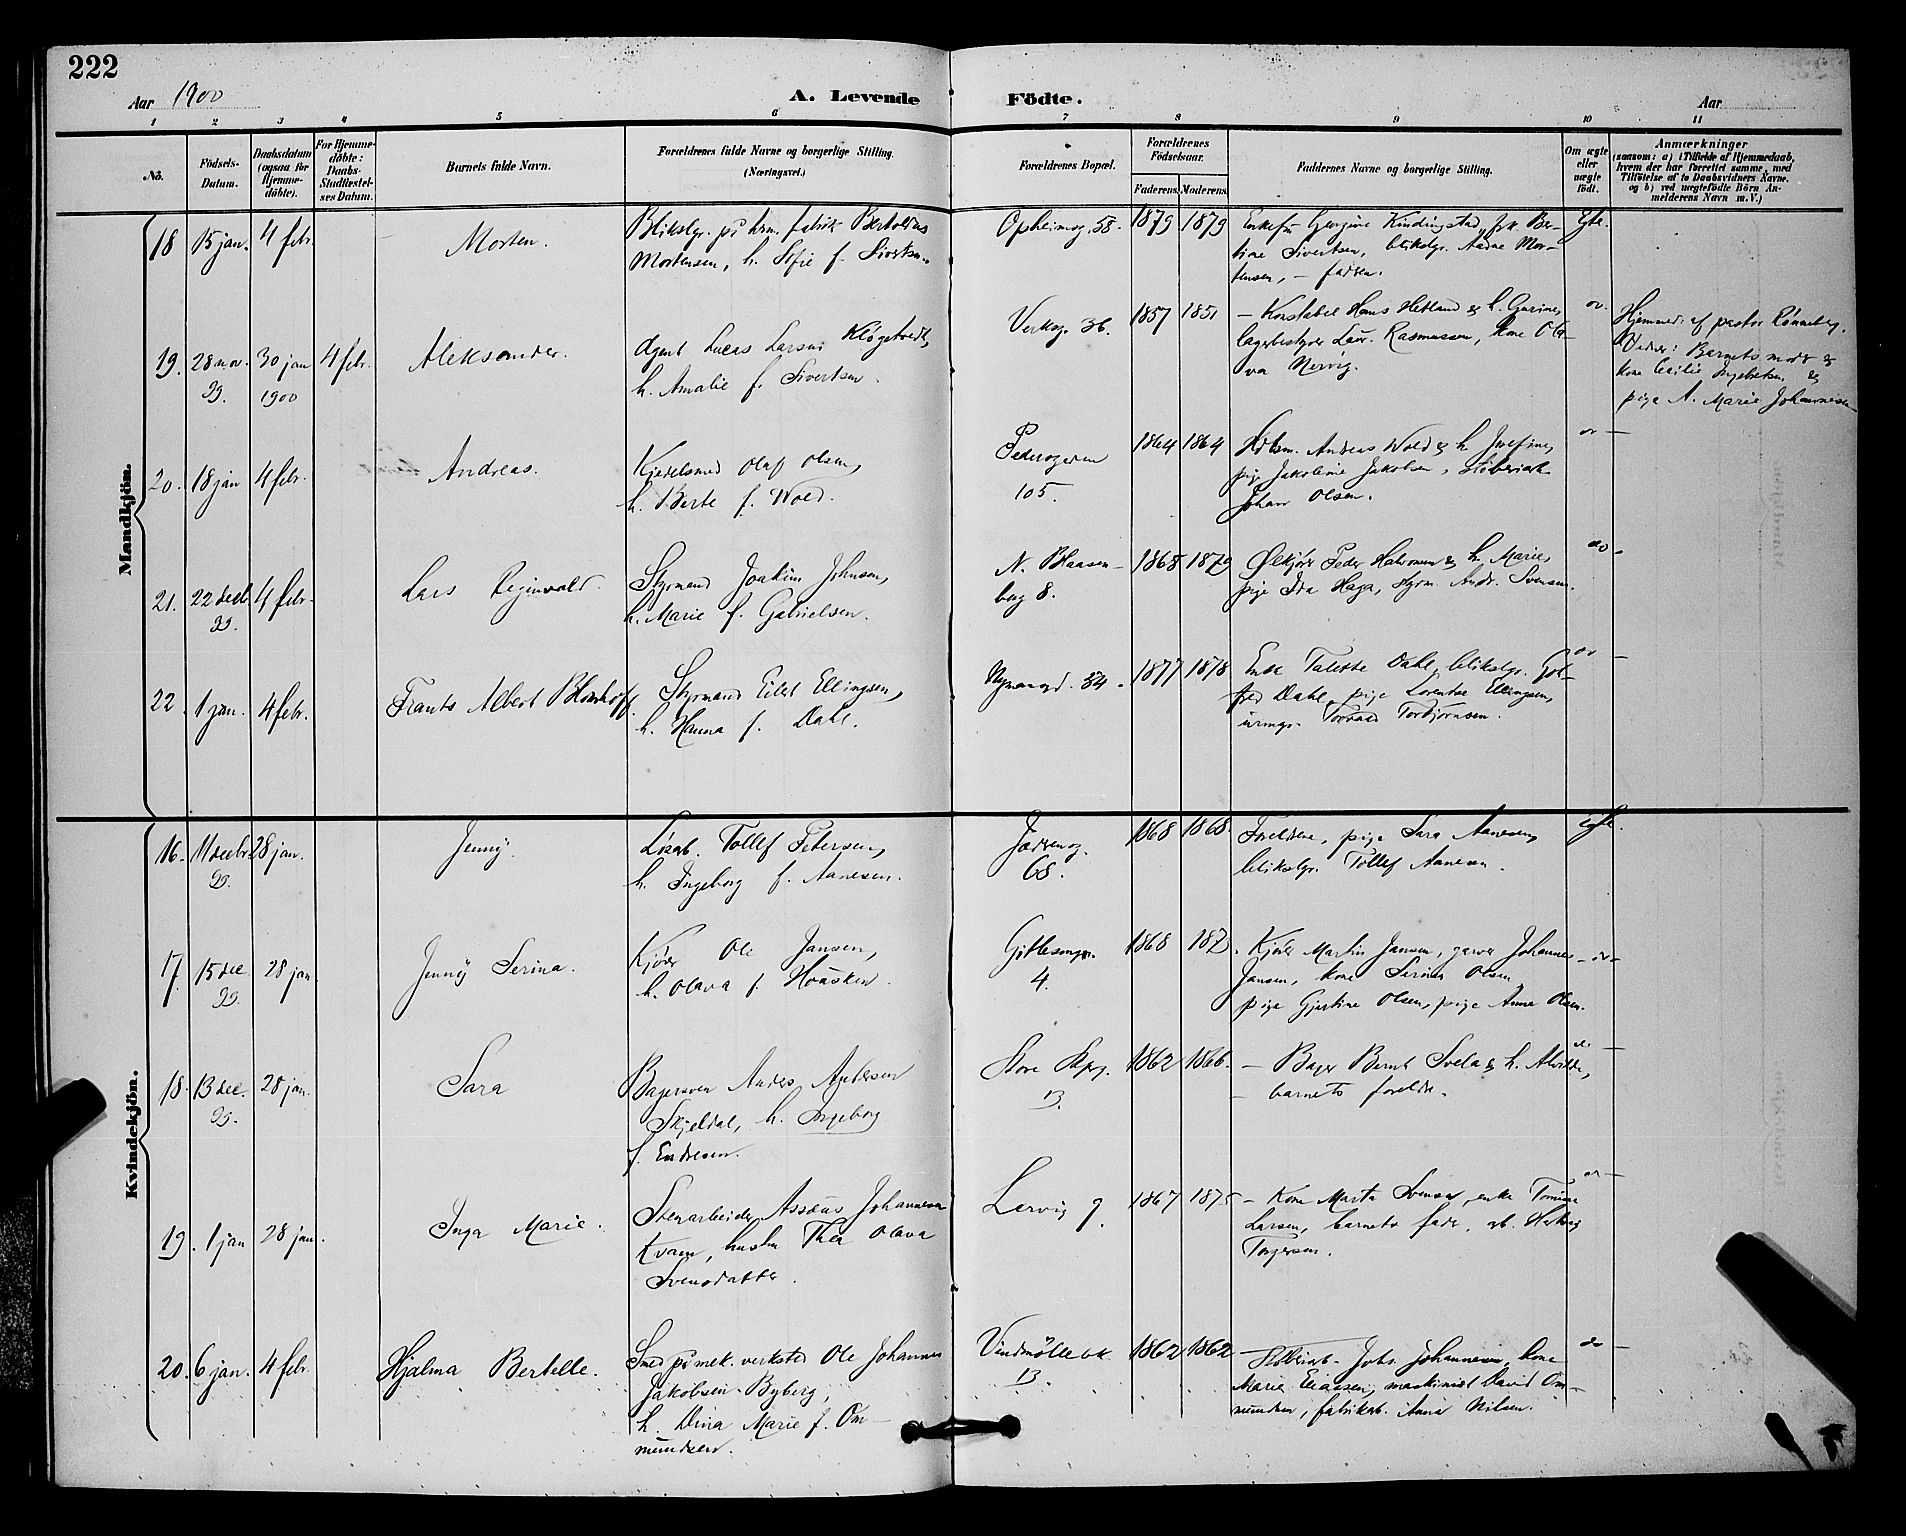 222
Aar 1900
A. Levende
Födte.
Aar
1 2 3 4 5 6 7 8 9 10 11
No.
Födsels-
Datum.
Daabsdatum
(ogsaa for
Hjemme-
döbte).
For Hjemme-
döbte:
Daabs-
Stadfæstel-
ses Datum.
Barnets fulde Navn.
Forældrenes fulde Navne og borgerlige Stilling.
(Næringsvei.)
Forældrenes Bopæl.
Forældrenes
Födselsaar.
Faderens. Moderens.
Faddernes Navne og borgerlige Stilling.
Om ægte
eller
uægte
födt.
Anmærkninger
(saasom: a) i Tilfælde af Hjemmedaab,
hvem der har forrettet samme, med
Tilföielse af to Daabsvidners Navne,
og b) ved uægtefödte Börn An-
melderens Navn m. V.)
Mandkjön.
18 15 jan. 4 febr.
Morten.
Blikslgr. på hrm. fabrik Bertholdus
Mortensen, h. Sofie f. Sivertsen.
Opheimsg. 58.
1879 1879
Enkefru Gurine Kindingstad, frk Ber-
tine Sivertsen, blikslgr. Aadne Mor-
tensen, – faderen.
Egte.
19. 28 nov. 99. 30 jan 1900 4 febr.
Aleksander.
Agent Lucas Larsen Kløgetvedt,
h. Amalie f. Sivertsen.
Verksg. 36.
1857 1851
– Konstabel Hans Hetland & h. Gurine,
lagerbestyrer Laur. Rasmussen, kone Ola-
va Nervig.
Hjemmed. af pastor Rønneberg.
Vidner: Barnets moder &
kone Cecilie Ingebretsen &
pige A. Marie Johannesen
20. 18 jan 4 febr.
Andreas.
Kjedelsmed Olaf Olsen,
h. Berte f. Wold.
Pedersgaden
105.
1864 1864
Andreas Wold & h. Josefine,
pige Jakobine Jakobsen,
Johan Olsen.
21. 22 decb. 99. 4 febr.
Lars Reginvald.
Styrmand Joakim Johnsen,
h. Marie f. Gabrielsen.
N. Blaasen-
borg 8.
1868 1879
Ølkjører Peder Halvorsen & h. Marie,
pige Ida Haga, styrm. Andr. Svensen.
22. 1 jan. 4 febr.
Frants Albert Blomhoff.
Styrmand Eilet Ellingsen,
h. Hanna f. Dahl.
Nymansgd. 34.
1877 1878
Enke Talette Dahl, blikslgr. Got-
fred Dahl, pige Lorentse Ellingsen,
Torvald Torbjørnsen.
Kvindekjön.
16. 11 decbr. 99. 28 jan.
Jenny.
Løsarb. Tollef Petersen,
h. Ingeborg f. Aanesen.
Jædrensg.
68.
1868 1868.
Foreldrene, pige Sara Aanesen,
blikslgr. Tollef Aanesen.
Egte.
17. 15 dec 99. 28 jan.
Jenny Serina.
Kjører Ole Jansen,
h. Olava f. Hoåsken.
4.
1868 1873.
Kjører Martin Jansen, garver Johannes
Jansen, kone Serina Olsen,
pige Gjertine Olsen, pige Anne Olsen.
18. 13 dec. 99. 28 jan.
Sara
Bagersven Anders Andersen
Skjeldal, h. Ingeborg
f. Endresen.
Store Skpg.
13.
1862 1866.
– Bager Bernt Svela & h. Alvilde,
– barnets foreldre.
19. 1 jan 28 jan.
Inga Marie.
Stenarbeider Assæus Johannesen
Kvam, hustru Thea Olava
Svensdatter.
Lervig 9.
1867 1875
– Kone Marta Svensen, enke Tomine
Larsen, barnets fader, arb.
Torgersen.
20. 6 jan. 4 febr.
Hjalma Bertelle.
Smed på mek. verksted Ole Johannes
Jakobsen Byberg,
h. Dina Marie f. Om-
mundsen.
Vindmøllebk
13.
1862 1862
Johs. Johannesen, kone
Marie Eliassen, maskinist David Om-
mundsen, fabrikarb. Anna Nilsen.